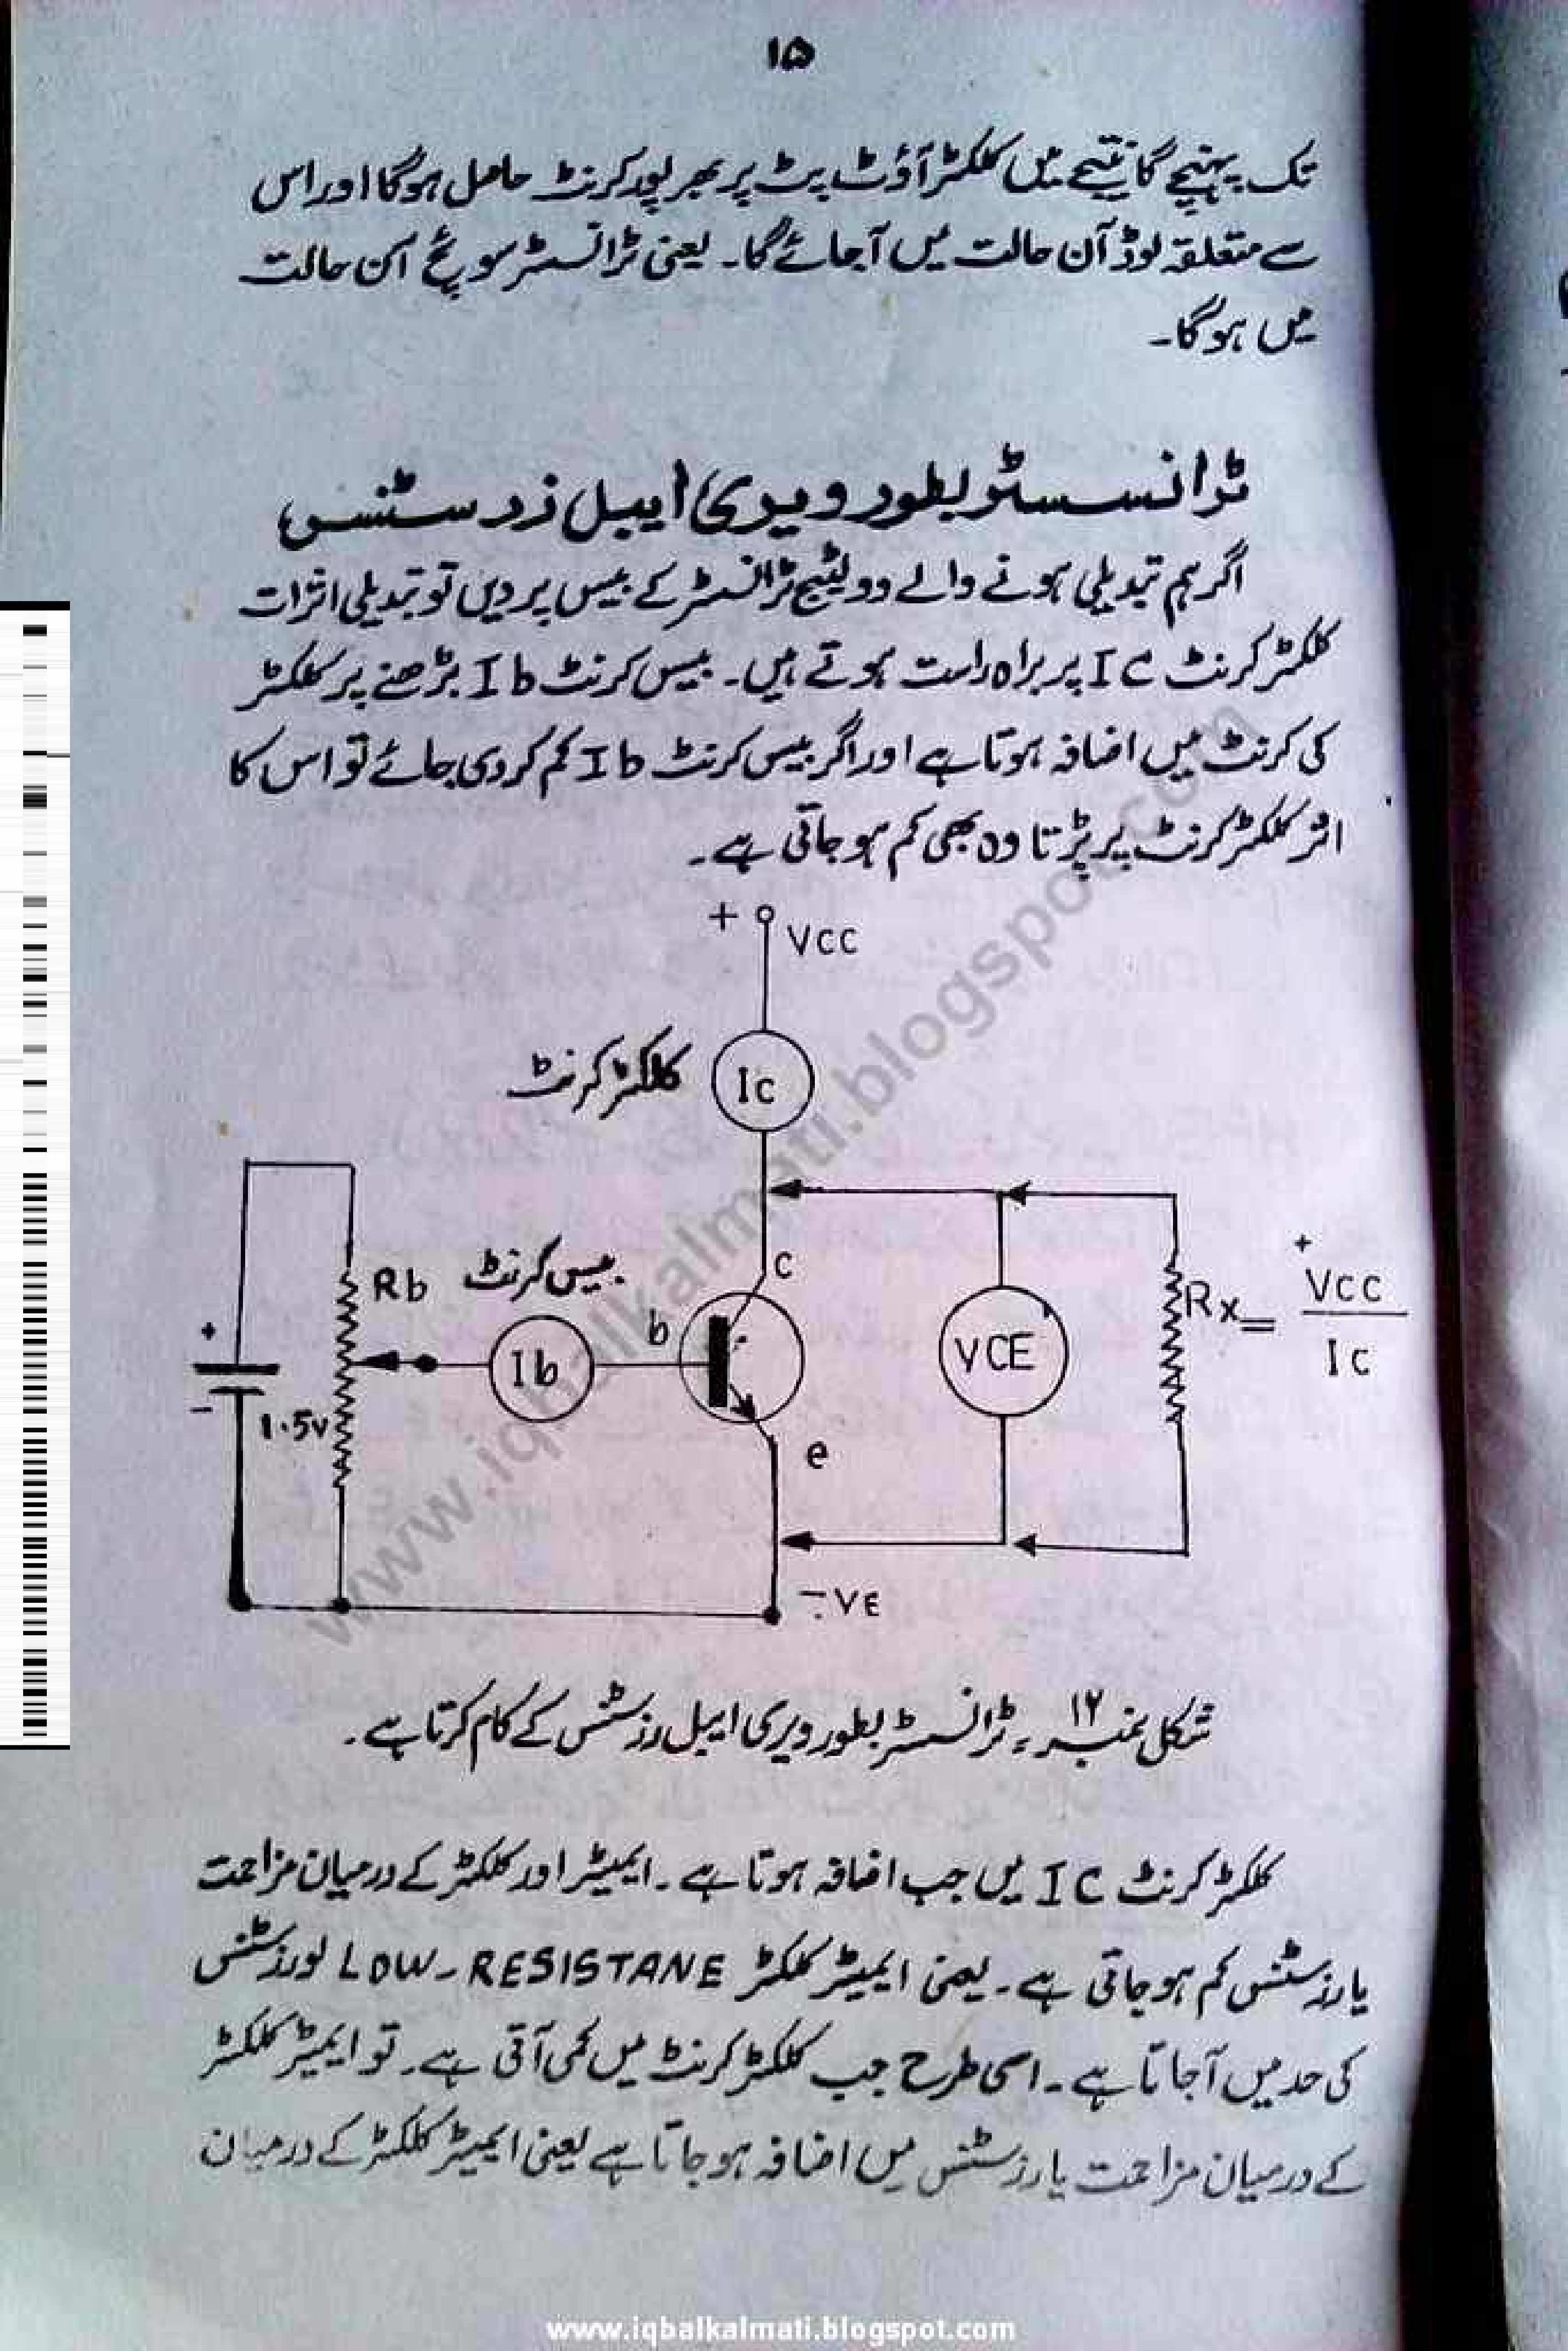 ۱۵
تک پہنچے گا نتیجے میں کلکٹر آؤٹ پٹ پر بھرپور کرنٹ حاصل ہوگا اور اس
سے متعلقہ لوڈ آن حالت میں آجائے گا۔ یعنی ٹرانسسٹر سوئچ آن حالت
میں ہوگا۔
ٹرانسسٹر بطور ویری ایبل رزسٹنس
اگر ہم تبدیلی ہونے والے وولٹیج ٹرانسسٹر کے بیس پر دیں تو تبدیلی اثرات
کلکٹر کرنٹ Ic پر براہ راست ہوتے ہیں۔ بیس کرنٹ Ib بڑھنے پر کلکٹر
کی کرنٹ میں اضافہ ہوتا ہے اور اگر بیس کرنٹ Ib کم کر دی جائے تو اس کا
اثر کلکٹر کرنٹ پر پڑتا وہ بھی کم ہو جاتی ہے۔
+ VCC
کلکٹر کرنٹ Ic
Rb بیس کرنٹ
c
b
Ib
VCE
Rx = + VCC / Ic
+
-
1.5v
e
- VE
شکل نمبر ۱۲ ٹرانسسٹر بطور ویری ایبل رزسٹنس کے کام کرتا ہے۔
کلکٹر کرنٹ IC میں جب اضافہ ہوتا ہے۔ ایمیٹر اور کلکٹر کے درمیان مزاحمت
یا رزسٹنس کم ہو جاتی ہے۔ یعنی ایمیٹر کلکٹر LOW-RESISTANE لو رزسٹنس
کی حد میں آجاتا ہے۔ اسی طرح جب کلکٹر کرنٹ میں کمی آتی ہے۔ تو ایمیٹر کلکٹر
کے درمیان مزاحمت یا رزسٹنس میں اضافہ ہو جاتا ہے یعنی ایمیٹر کلکٹر کے درمیان
www.iqbalkalmati.blogspot.com
www.iqbalkalmati.blogspot.com